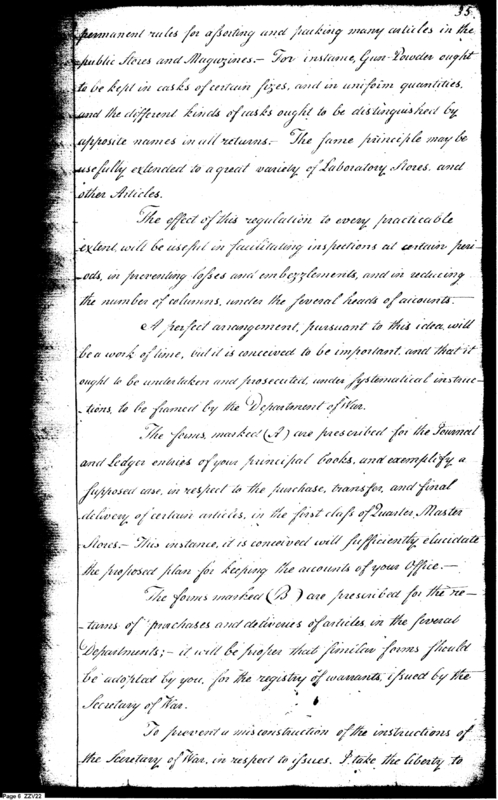 35
permanent rules for assorting and packing many articles in the
public Stores and Magazines.— For instance, Gun-Powder ought
to be kept in casks of certain sizes, and in uniform quantities,
and the different kinds of casks ought to be distinguished by
apposite names in all returns.— The same principle may be
usefully extended to a great variety of Laboratory Stores, and
other Articles.
The effect of this regulation to every practicable
extent, will be useful in facilitating inspections at certain peri-
-ods, in preventing losses and embezzlements, and in reducing
the number of columns, under the several heads of accounts.—
A perfect arangement, pursuant to this idea, will
be a work of time, but it is conceived to be important, and that it
ought to be undertaken and prosecuted, under systematical instruc-
-tions, to be framed by the Department of War.
The forms, marked (A) are prescribed for the Journal
and Ledger entries of your principal books, and exemplify a
supposed case, in respect to the purchase, transfer, and final
delivery of certain articles, in the first class of Quarter Master
Stores.— This instance, it is conceived will sufficiently elucidate
the proposed plan for keeping the accounts of your Office.—
The forms marked (B) are prescribed for the re-
-turns of purchases and deliveries of articles in the several
Departments;— it will be proper that similar forms should
be adopted by you, for the registry of warrants, issued by the
Secretary of War.
To prevent a misconstruction of the instructions of
the Secretary of War, in respect to issues, I take the liberty to
Page 6 ZZV22